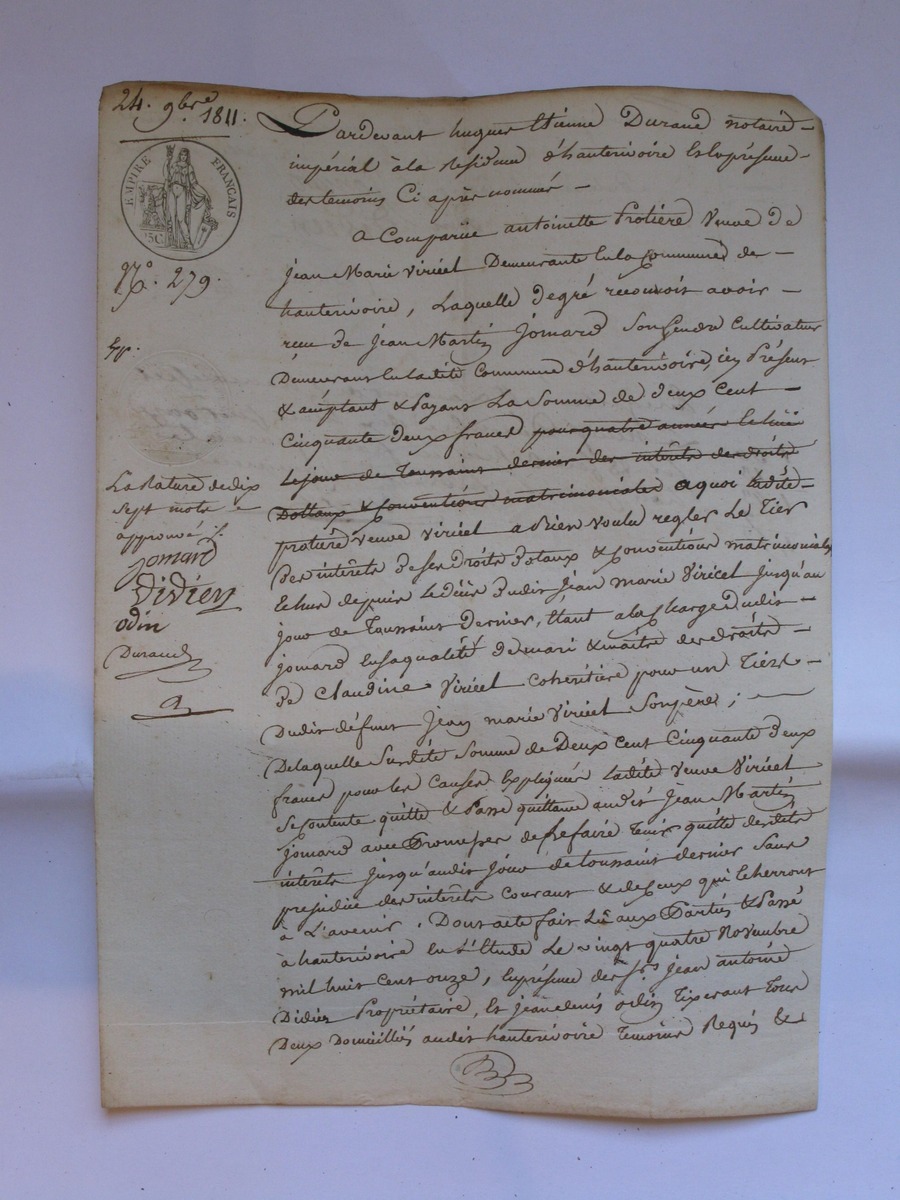 24. 9bre 1811.
EMPIRE FRANÇAIS
25C.
N.° 279.
Exp.
La Rature de dix
sept mots
approuvé ./.
jomard
Didier
odin
Durand
Pardevant hugues Etienne Durand notaire
impérial à la Residence d'hauterivoire En la présence
des temoins Ci après nommés
a Comparüe antoinette Protiere Veuve de
Jean Marie Viricel Demeurante En la Commune de
hauterivoire, Laquelle de gré reconnoit avoir
reçu de Jean Martin Jomard Son Gendre Cultivateur
Demeurant En ladite Commune d'hauterivoire, icy Présent
& acceptant & Payant La Somme de deux Cent
Cinquante deux francs pour quatre années Echüe
Le jour de Toussaint dernier des intérêts des droits
Dottaux & Conventions matrimoniales a quoi ladite
protiere veuve viricel a Bien voulu regler Le Tier
Des interêts de ses Droits Dotaux & Conventions matrimoniales
Echus depuis le décès dudit Jean marie Viricel Jusqu'au
jour de Toussaint Dernier, Etant a la Charge dudit
jomard En sa qualité de mari & maître des droits
de Claudine Viricel Coheritière pour un Tiers
Dudit défunt Jean marie Viricel Son père ;
De laquelle Susdite Somme de Deux Cent Cinquante deux
francs pour les Causes Expliquées ladite Veuve Viricel
Se Contente quitte & Passe quittance audit Jean Martin
Jomard avec Promesses de Le faire Tenir quitte desdits
interêts jusqu'audit Jour de toussaint dernier Sans
prejudice des interêts Courant & de Ceux qui Echerront
à L'avenir. Dont acte fait Lu aux Parties & Passé
à hauterivoire En L'Etude Le vingt quatre Novembre
mil huit Cent onze, En présence des Srs Jean antoine
Didier Propriétaire, Et Jean denis odin Tixerant Tous
Deux Domiciliés audit hauterivoire Temoins Requis &